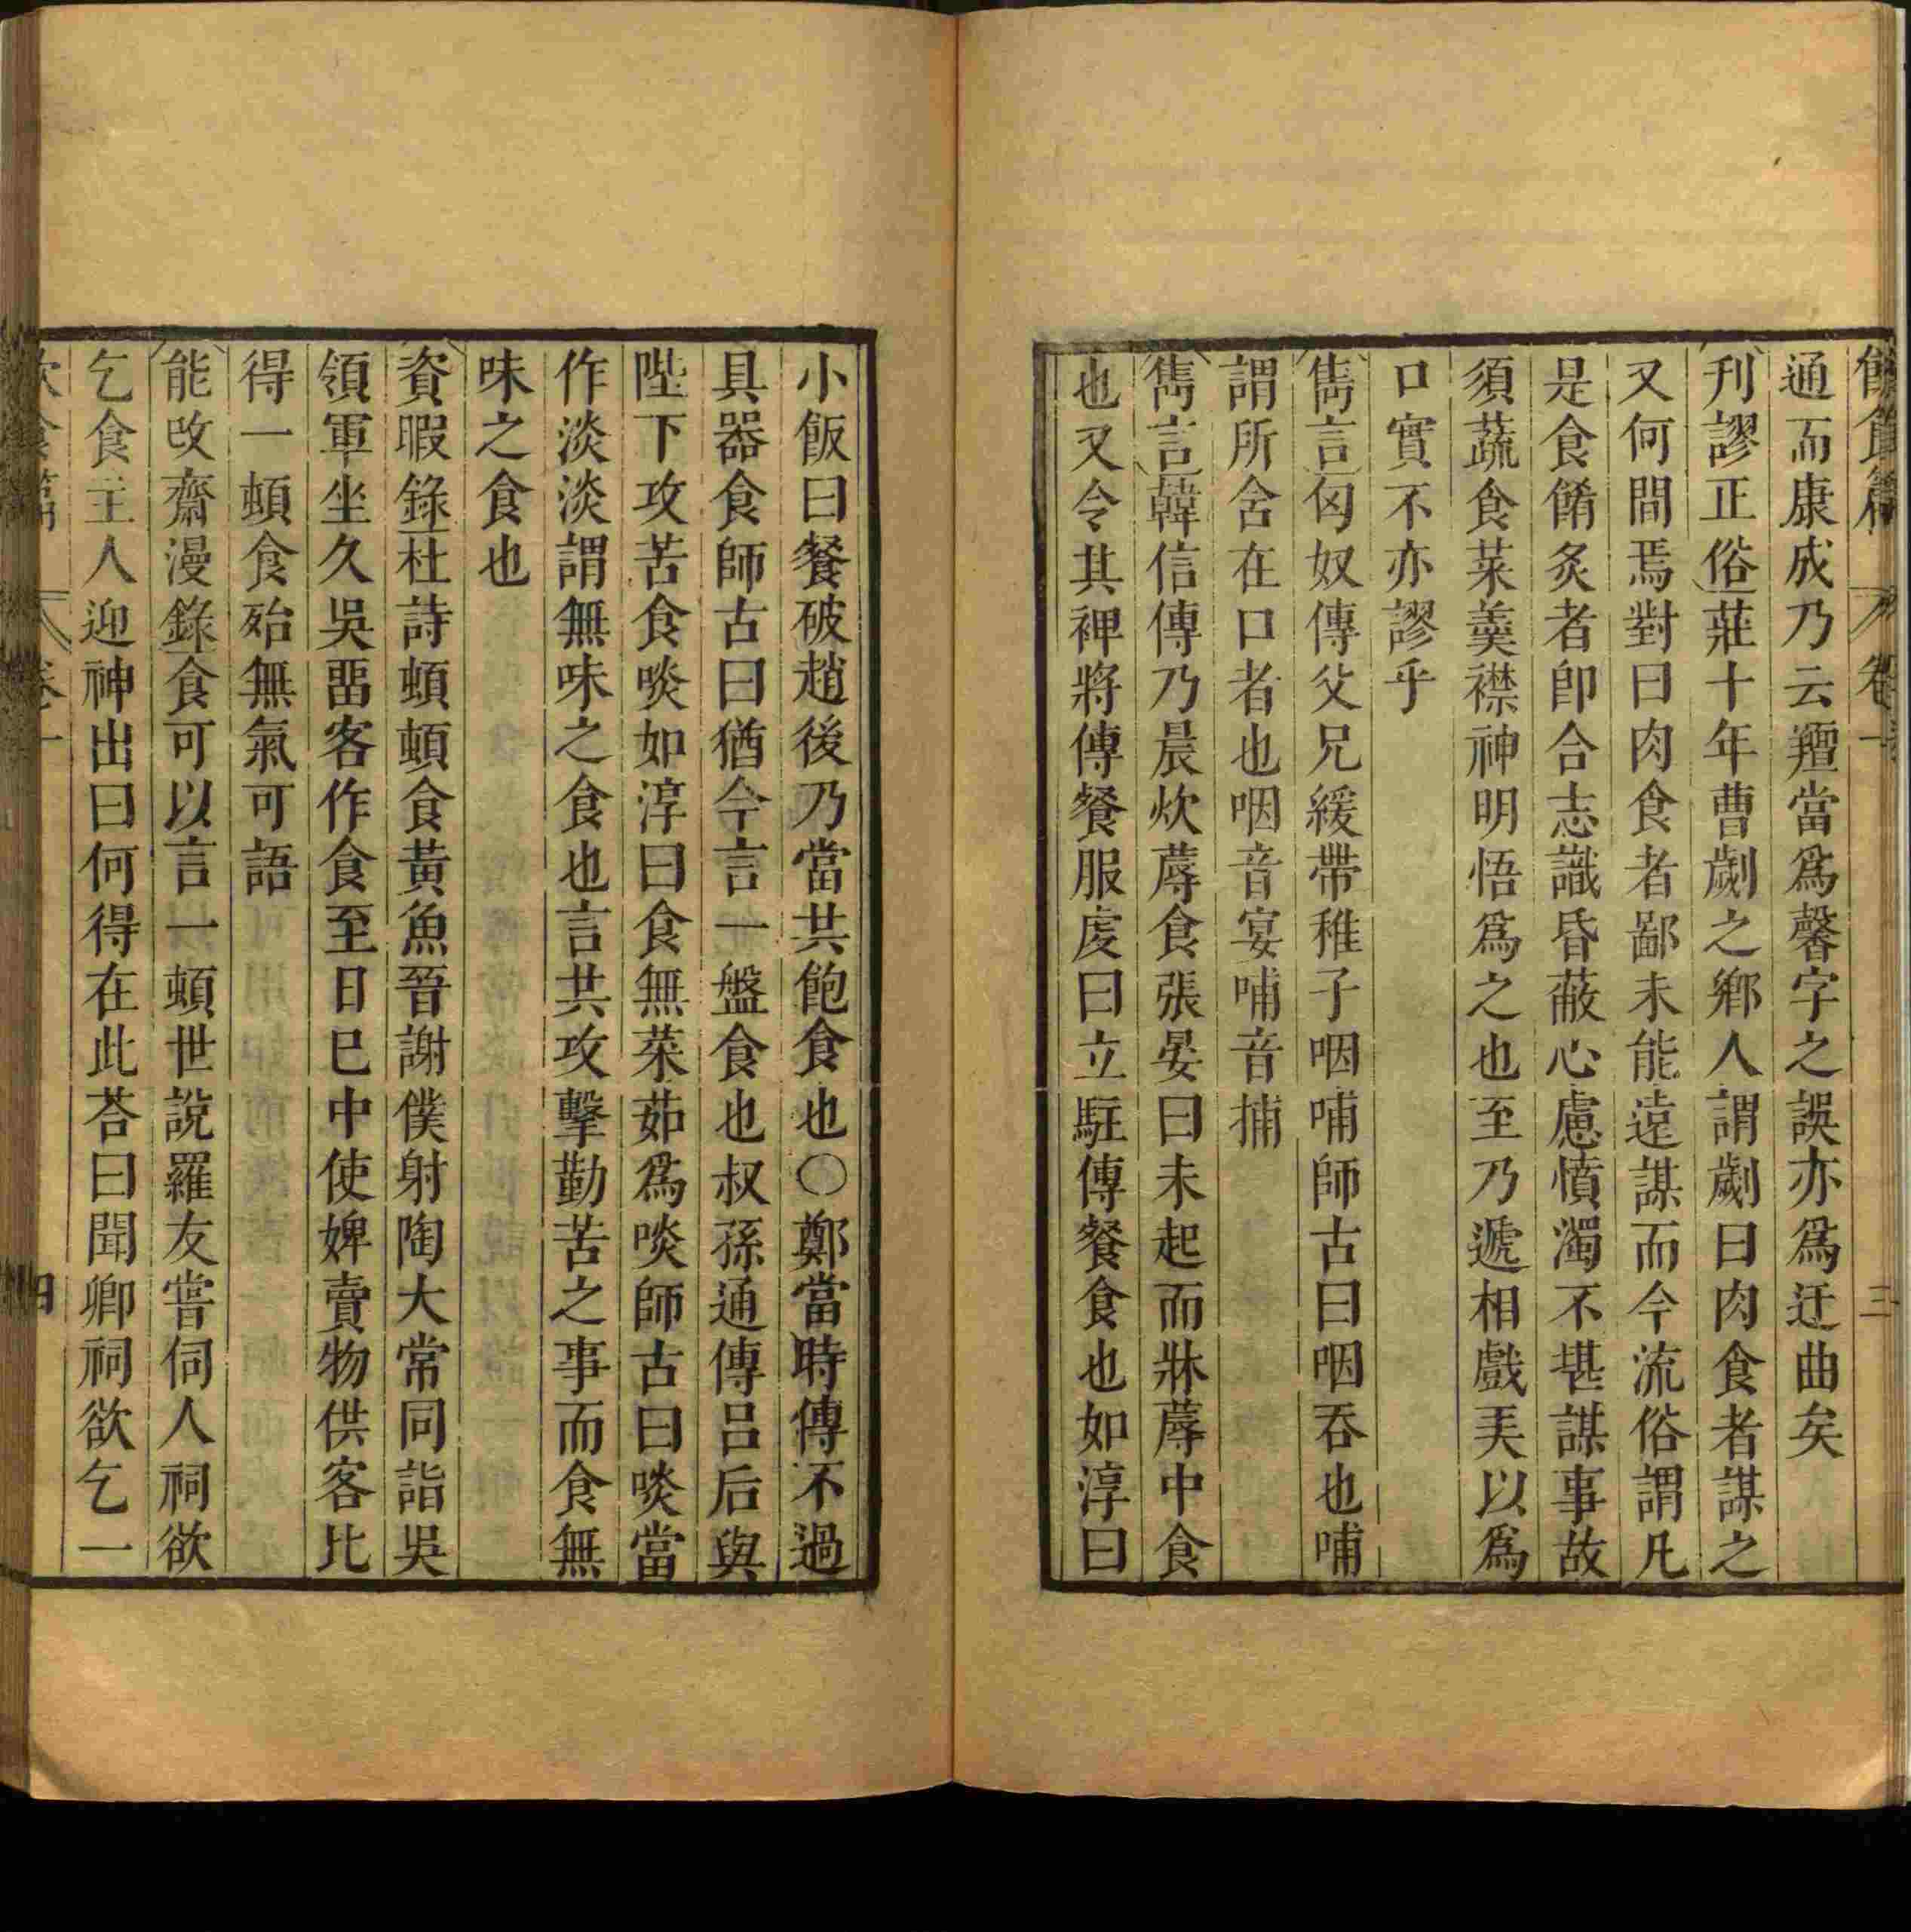 通而康成乃云羶當爲馨字之誤亦爲迂曲矣
刋謬正俗莊十年曹劌之鄉人謂劌曰肉食者謀之
又何間焉對曰肉食者鄙未能遠謀而今流俗謂凡
是食餚炙者卽合志識昏蔽心慮憤濁不堪謀事故
須蔬食菜羹襟神明悟爲之也至乃遞相戲美以爲
口實不亦謬乎
雋言匈奴傳父兄緩帶稚子咽哺師古曰咽吞也哺
謂所舍在口者也咽音宴哺音捕
雋言韓信傳乃晨炊蓐食張晏曰未起而牀蓐中食
也又令其裨將傳餐服虔曰立駐傳餐食也如淳曰
小飯曰餐破趙後乃當共飽食也○鄭當時傳不過
具器食師古曰猶今言一盤食也叔孫通傳呂后與
陛下攻苦食啖如淳曰食無菜茹爲啖師古曰啖當
作淡淡謂無味之食也言共攻擊勤苦之事而食無
味之食也
資暇錄杜詩頓頓食黃魚晉謝僕射陶大常同詣吳
領軍坐久吳畱客作食至日巳中使婢賣物供客比
得一頓食殆無氣可語
能改齋漫錄食可以言一頓世說羅友嘗伺人祠欲
乞食主人迎神出曰何得在此荅曰聞卿祠欲乞一
卷一
四